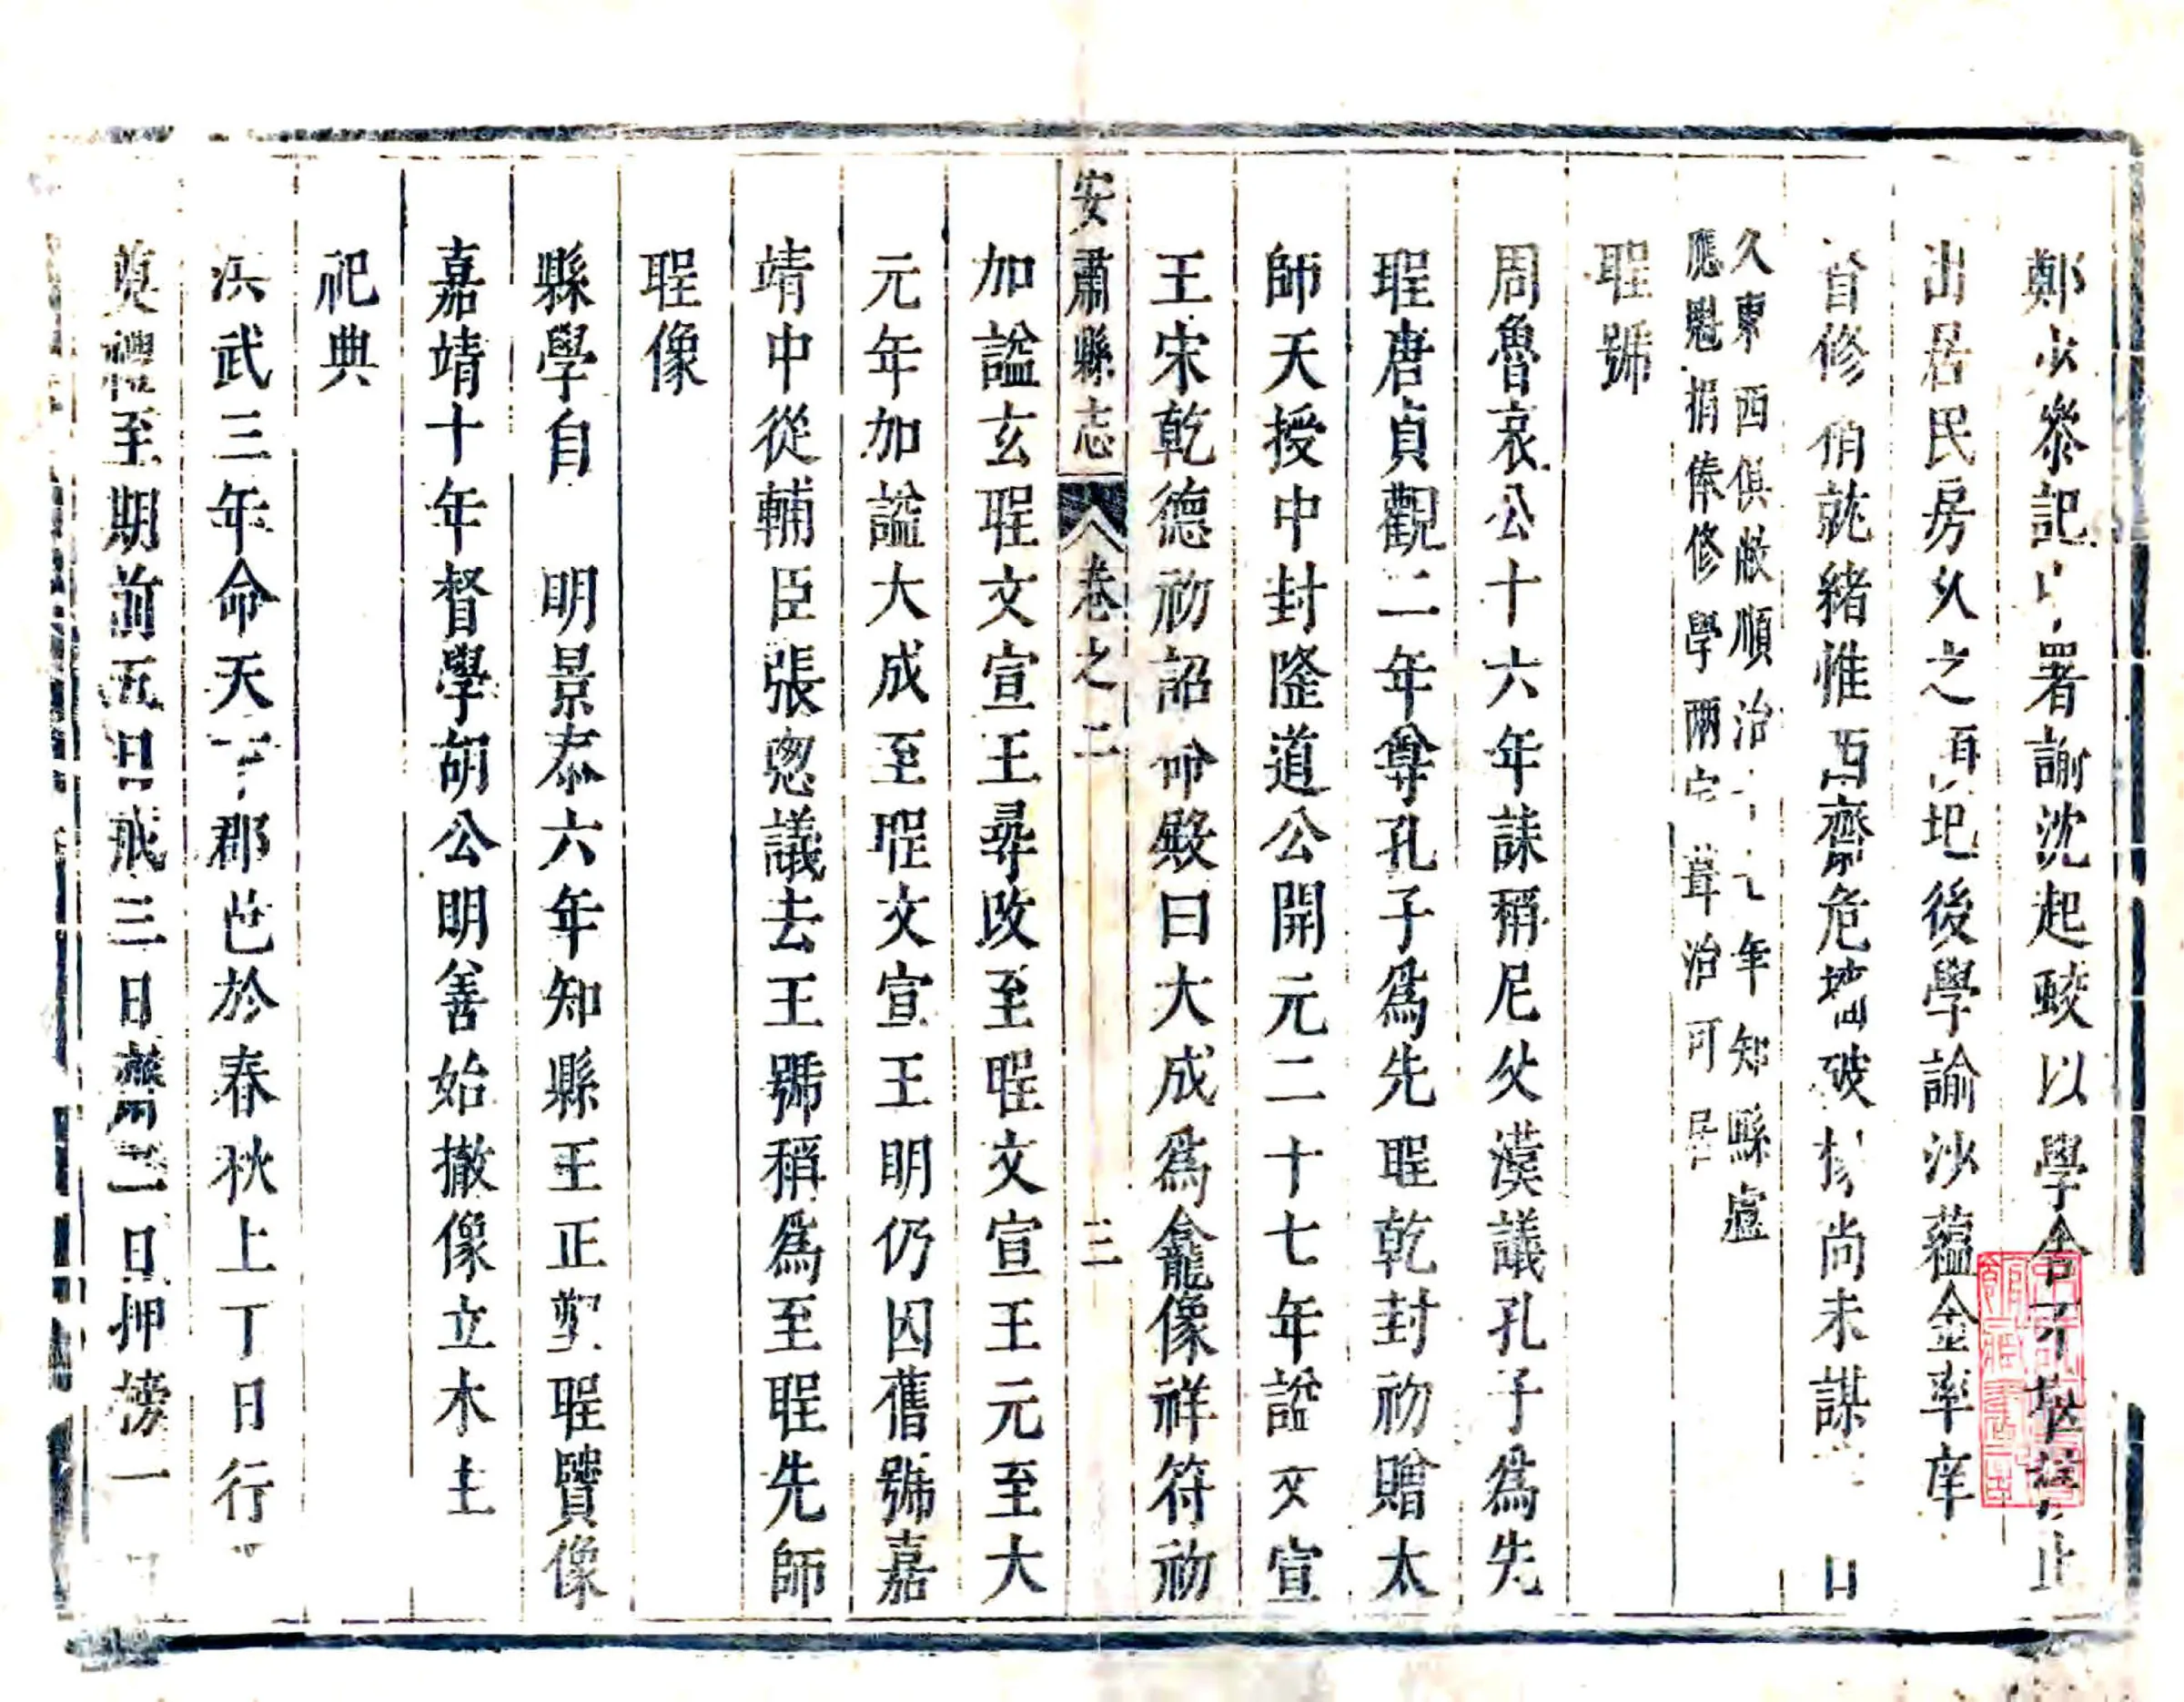 鄭少叅記中署謝沈起蛟以學舍
出居民房久之頃圯後學諭沙蘊金率庠
首修稍就緒惟西齋危墻破 尚未謀
久東西俱敝順治十 年知縣盧
應魁捐俸修學兩 葺治可居
聖號
周魯哀公十六年誄稱尼父漢議孔子爲先
聖唐貞觀二年尊孔子爲先聖乾封初贈太
師天授中封隆道公開元二十七年諡文宣
王宋乾德初詔命殿曰大成爲龕像祥符初
安肅縣志 卷之二 三
加諡玄聖文宣王尋改至聖文宣王元至大
元年加諡大成至聖文宣王明仍因舊號嘉
靖中從輔臣張悤議去王號稱爲至聖先師
聖像
縣學自 明景泰六年知縣王正塑聖賢像
嘉靖十年督學胡公明善始撤像立木主
祀典
洪武三年命天下郡邑於春秋上丁日行
奠禮至期前五日戒三日齋二日押榜一